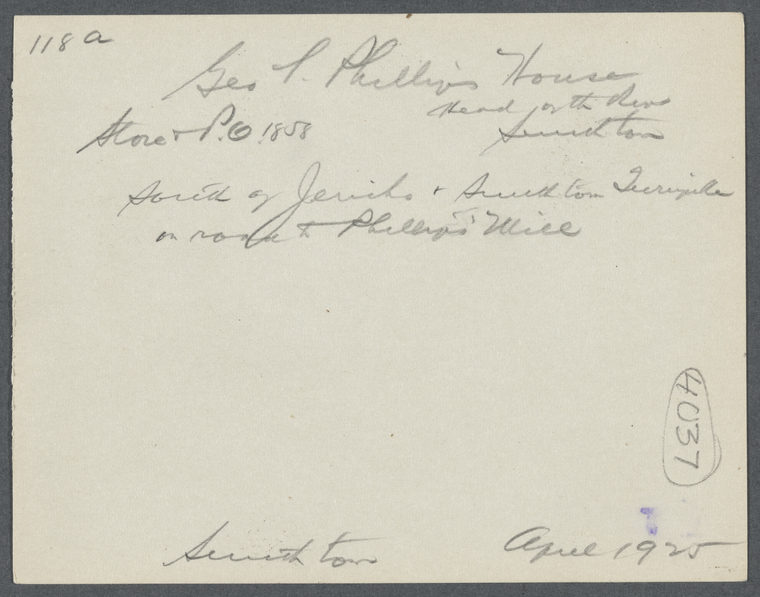 118a
Geo S. Phillips House
Head of the River
Store & P.O. 1858
Smithtown
South of Jericho & Smithtown Turnpike
on road to Phillips' Mill
4037
Smithtown
April 1925